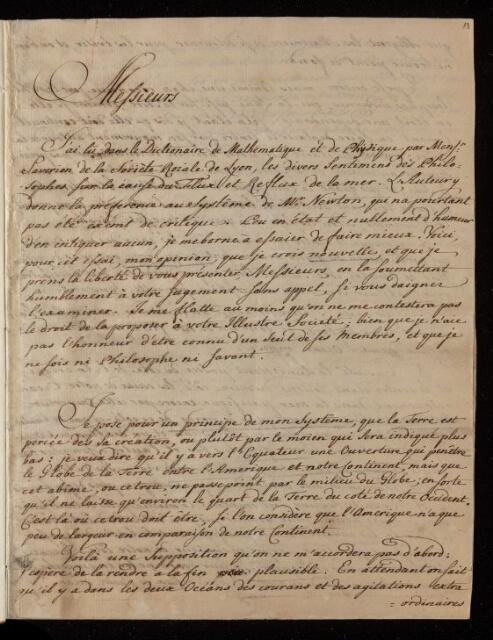 13
Messieurs
J'ai lû, dans le Dictionaire de Mathematique et de Physique, par Monsr.
Saverien de la Societé Roiale de Lyon, les divers Sentimens des Philo-
sophes, sur la cause du Flux et Reflux de la mer. L'Auteur y
donne la préference au Systême de Mr. Newton, qui n'a pourtant
pas été exemt de critique. Peu en état et nullement d'humeur
d'en critiquer aucun, je me borne à essaier de faire mieux. Voici,
pour cet essai, mon opinion, que je crois nouvelle, et que je
prens la liberté de vous présenter, Messieurs, en la soumettant
humblement à vôtre jugement sans appel, si vous daigner
l'examiner. Je me flatte au moins qu'on ne me contestera pas
le droit de la proposer à vôtre Illustre Société; bien que je n'aie
pas l'honneur d'être connu d'un seul de ses Membres, et que je
ne sois ni Philosophe ni savant.
Je pose pour un principe de mon Systême, que la Terre est
percée dès sa création, ou plutôt par le moien qui sera indiqué plus
bas: je veux dire qu'il y a vers l'Equateur une Ouverture qui penètre
le Globe de la Terre entre l'Amerique et notre Continent, mais que
cet abime, ou ce trou, ne passe point par le milieu du Globe, en sorte
qu'il ne laisse qu'environ le quart de la Terre du coté de notre Occident.
C'est là où ce trou doit être, si l'on considère que l'Amerique n'a que
peu de largeur en comparaison de notre Continent.
Voila une Supposition qu'on ne m'accordera pas d'abord:
j'espere de la rendre à la fin plausible. En attendant on sait
qu'il y a dans les deux Océans des courans et des agitations extra
=ordinaires